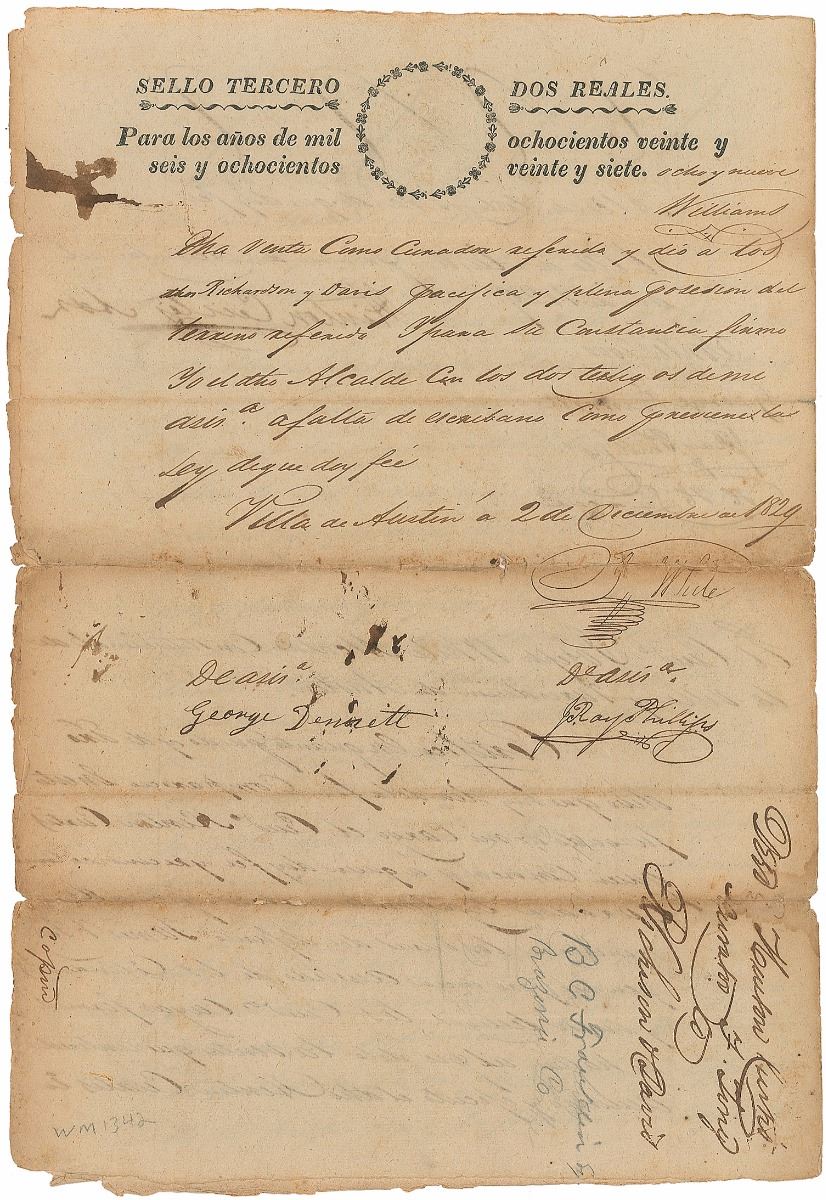 SELLO TERCERO
DOS REALES.
Para los años de mil
ochocientos veinte y
seis y ochocientos
veinte y siete. ocho y nueve
Williams
dha Venta Como Curador referida y dió a los
dhos Richardson y Davis pacifica y plena posesion del
terreno referido Y para su Constancia firmo
Yo el dho Alcalde Con los dos testigos de mi
asis.a a falta de escribano Como previene las
Ley de que doy fée
Villa de Austin á 2 de Diciembre de 1829
White
De asis.a
De asis.a
George Dennett
J Ray Phillips
Deed Hinton Curtis
Curator
to
Richison & Davis
B C Franklin
Brazoria Co
Copia
WM1342